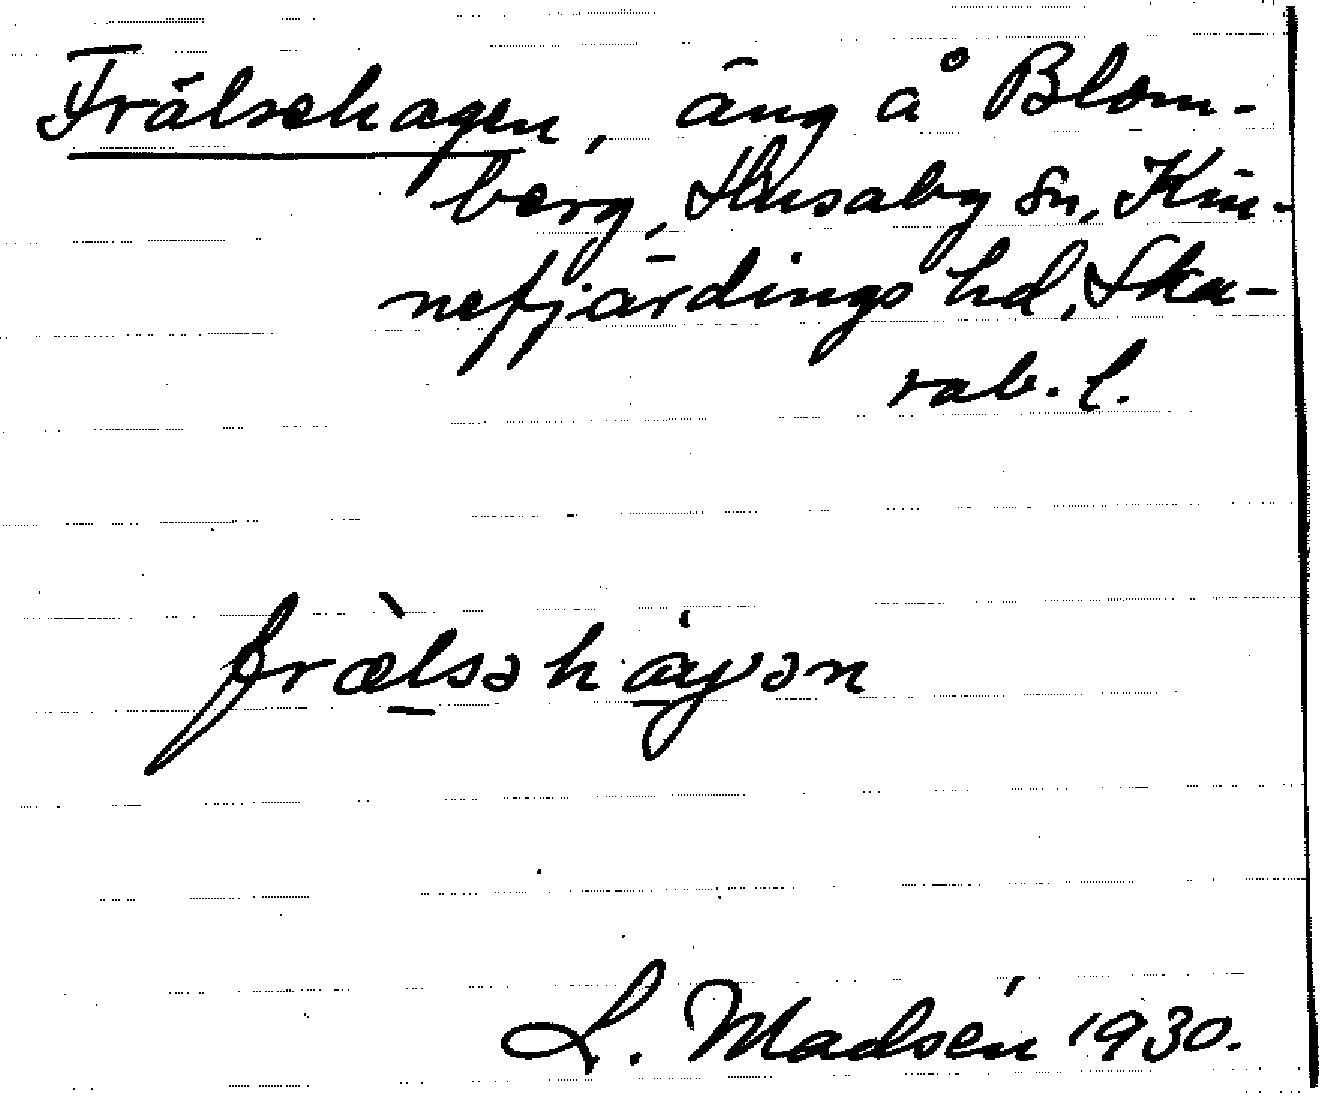 Frälsehagen, äng å Blom-
berg, Husaby sn, Kin-
nefjärdings hd, Ska-
rab. l.
fræ̀lsəhag̣ən
L. Madsén 1930.